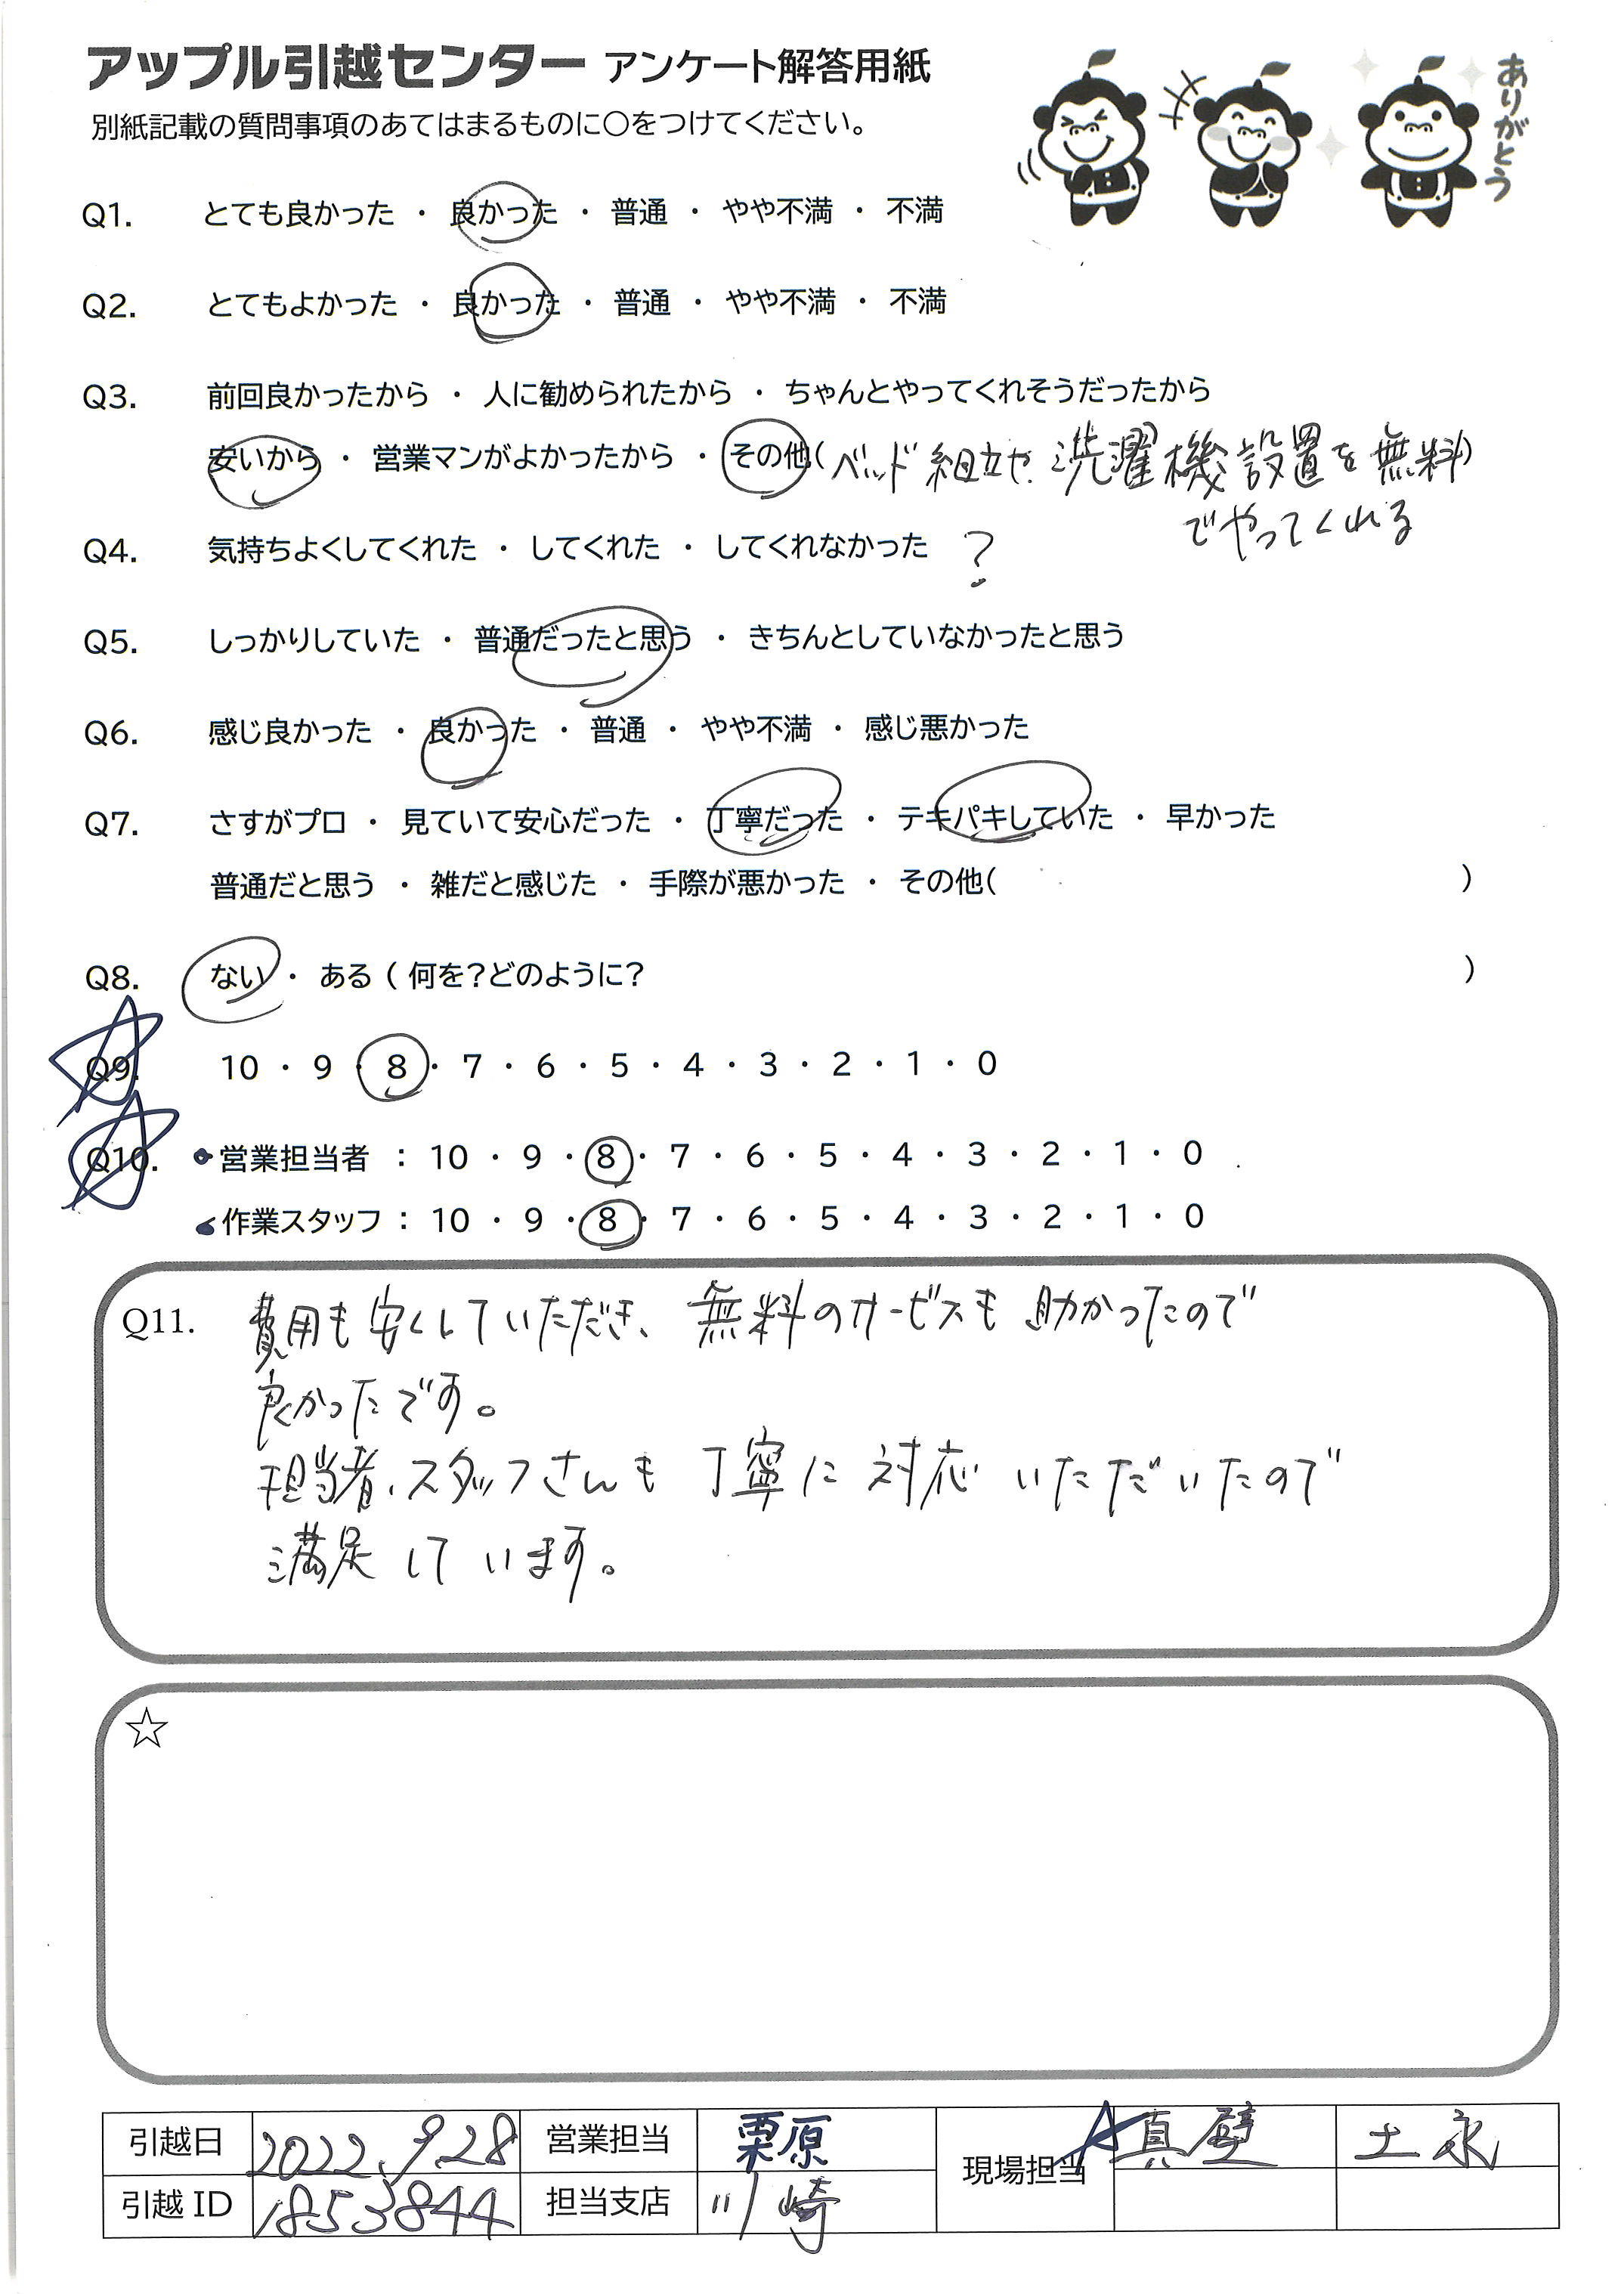 アップル引越センター アンケート解答用紙
ありがとう
別紙記載の質問事項のあてはまるものに○をつけてください。
Q1. とても良かった ・ 良かった ・ 普通 ・ やや不満 ・ 不満
Q2. とてもよかった ・ 良かった ・ 普通 ・ やや不満 ・ 不満
Q3. 前回良かったから ・ 人に勧められたから ・ ちゃんとやってくれそうだったから
安いから ・ 営業マンがよかったから ・ その他( ベッド組立や洗濯機設置を無料)
でやってくれる
Q4. 気持ちよくしてくれた ・ してくれた ・ してくれなかった ?
Q5. しっかりしていた ・ 普通だったと思う ・ きちんとしていなかったと思う
Q6. 感じ良かった ・ 良かった ・ 普通 ・ やや不満 ・ 感じ悪かった
Q7. さすがプロ ・ 見ていて安心だった ・ 丁寧だった ・ テキパキしていた ・ 早かった
普通だと思う ・ 雑だと感じた ・ 手際が悪かった ・ その他( )
Q8. ない ・ ある ( 何を?どのように? )
Q9. 10 ・ 9 ・ 8 ・ 7 ・ 6 ・ 5 ・ 4 ・ 3 ・ 2 ・ 1 ・ 0
Q10. 営業担当者 : 10 ・ 9 ・ 8 ・ 7 ・ 6 ・ 5 ・ 4 ・ 3 ・ 2 ・ 1 ・ 0
作業スタッフ : 10 ・ 9 ・ 8 ・ 7 ・ 6 ・ 5 ・ 4 ・ 3 ・ 2 ・ 1 ・ 0
Q11. 費用も安くしていただき、無料のサービスも助かったので
良かったです。
担当者、スタッフさんも丁寧に対応いただいたので
満足しています。
☆
引越日 2022.9.28 営業担当 栗原 現場担当 真壁 土永
引越 ID 1853844 担当支店 川崎